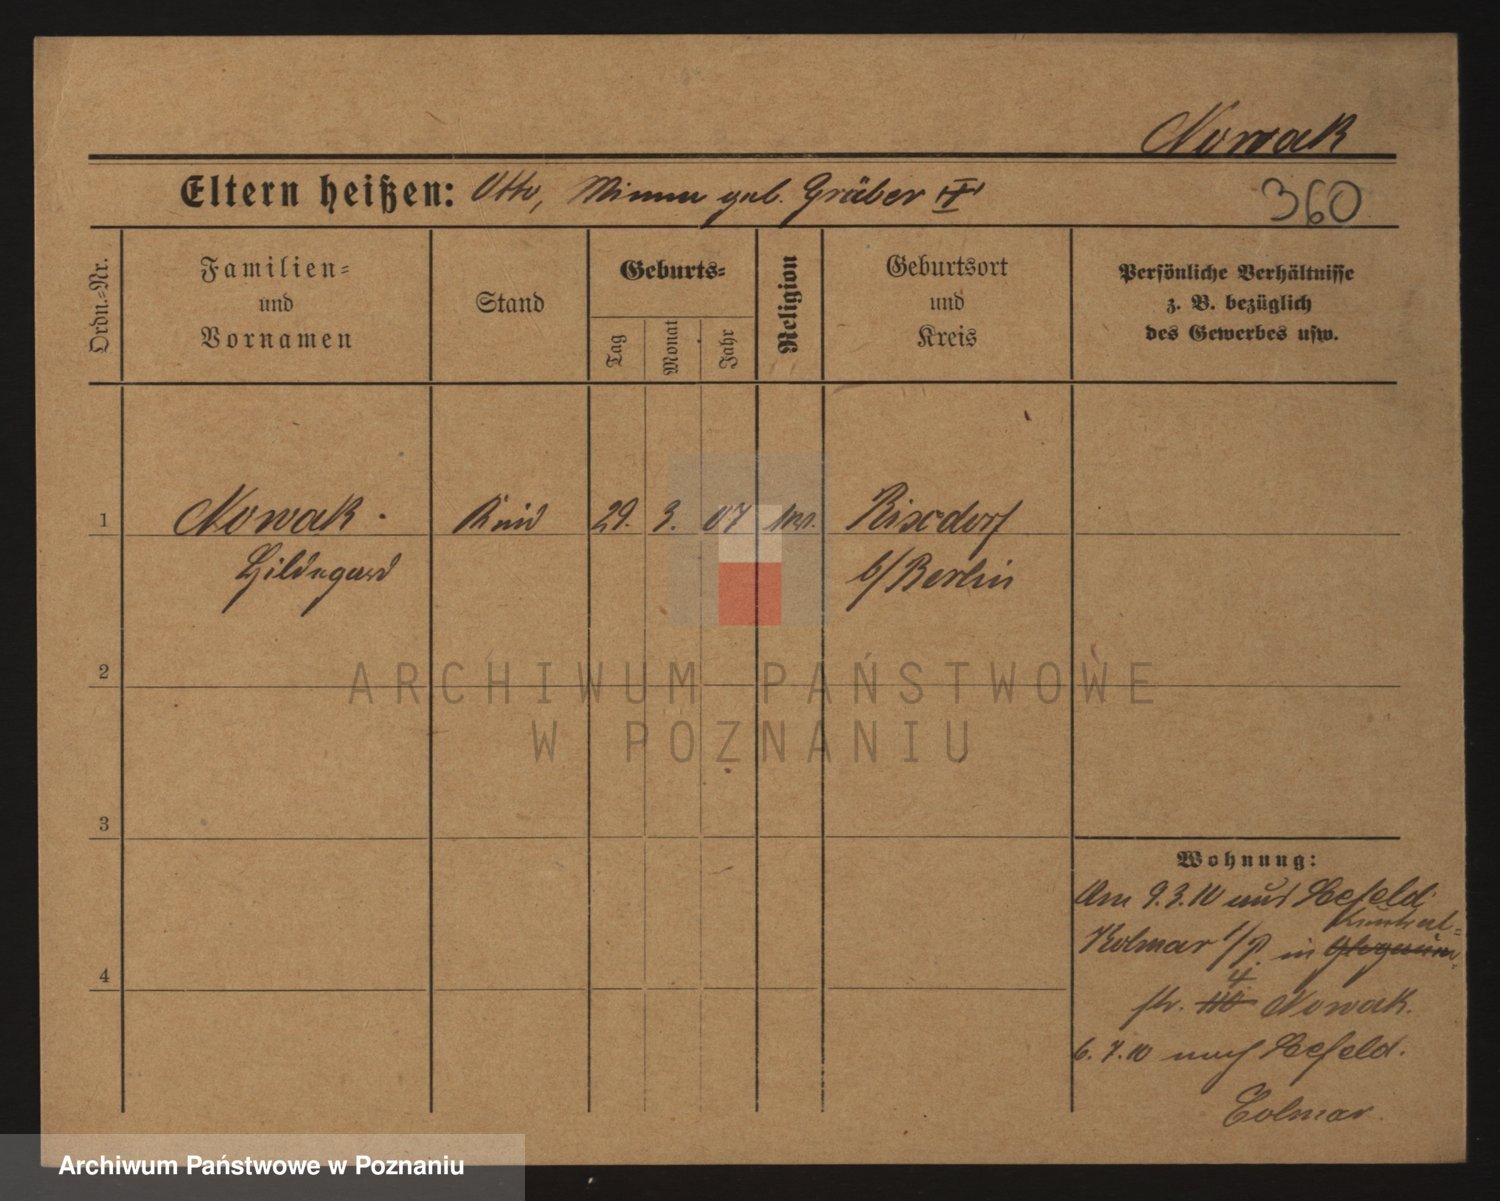 Nowak
Eltern heißen: Otto, Minna geb. Gräber
360
Ordn.-Nr.
Familien-
und
Vornamen
Stand
Geburts-
Tag
Monat
Jahr
Religion
Geburtsort
und
Kreis
Persönliche Verhältnisse
z. B. bezüglich
des Gewerbes usw.
1 Nowak. Kind 29. 3. 07 Rixdorf
Hildegard b/Berlin
2
ARCHIWUM PAŃSTWOWE
W POZNANIU
3
Wohnung:
Am 9.3.10 aus Seefeld
Kolmar i/P. in
str. 4 Nowak.
6.7.10 nach Seefeld.
Colmar.
4
Archiwum Państwowe w Poznaniu